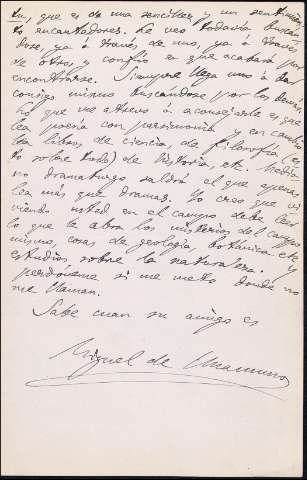 tu, que es de una sencillez y un sentimien-
to encantadores. Le veo todavía buscan-
dose, ya á través de uno, ya á través
de otros, y confío en que acabará por
encontrarse. Siempre llega uno á dar
consigo mismo buscandose por los demás.
Lo que me atrevo á aconsejarle es que
lea poesía con parsimonia y en cambio
lea libros de ciencia, de filosofía (es-
to sobre todo) de historia, etc. Media-
no dramaturgo saldrá el que apenas
lea más que dramas. Yo creo que vi-
viendo usted en el campo debe leer
lo que le abra los misterios del campo
mismo, cosas de geología, botánica etc y
estudios sobre la naturaleza.
Y perdóneme si me meto donde no
me llaman.
Sabe cuan su amigo es
Miguel de Unamuno